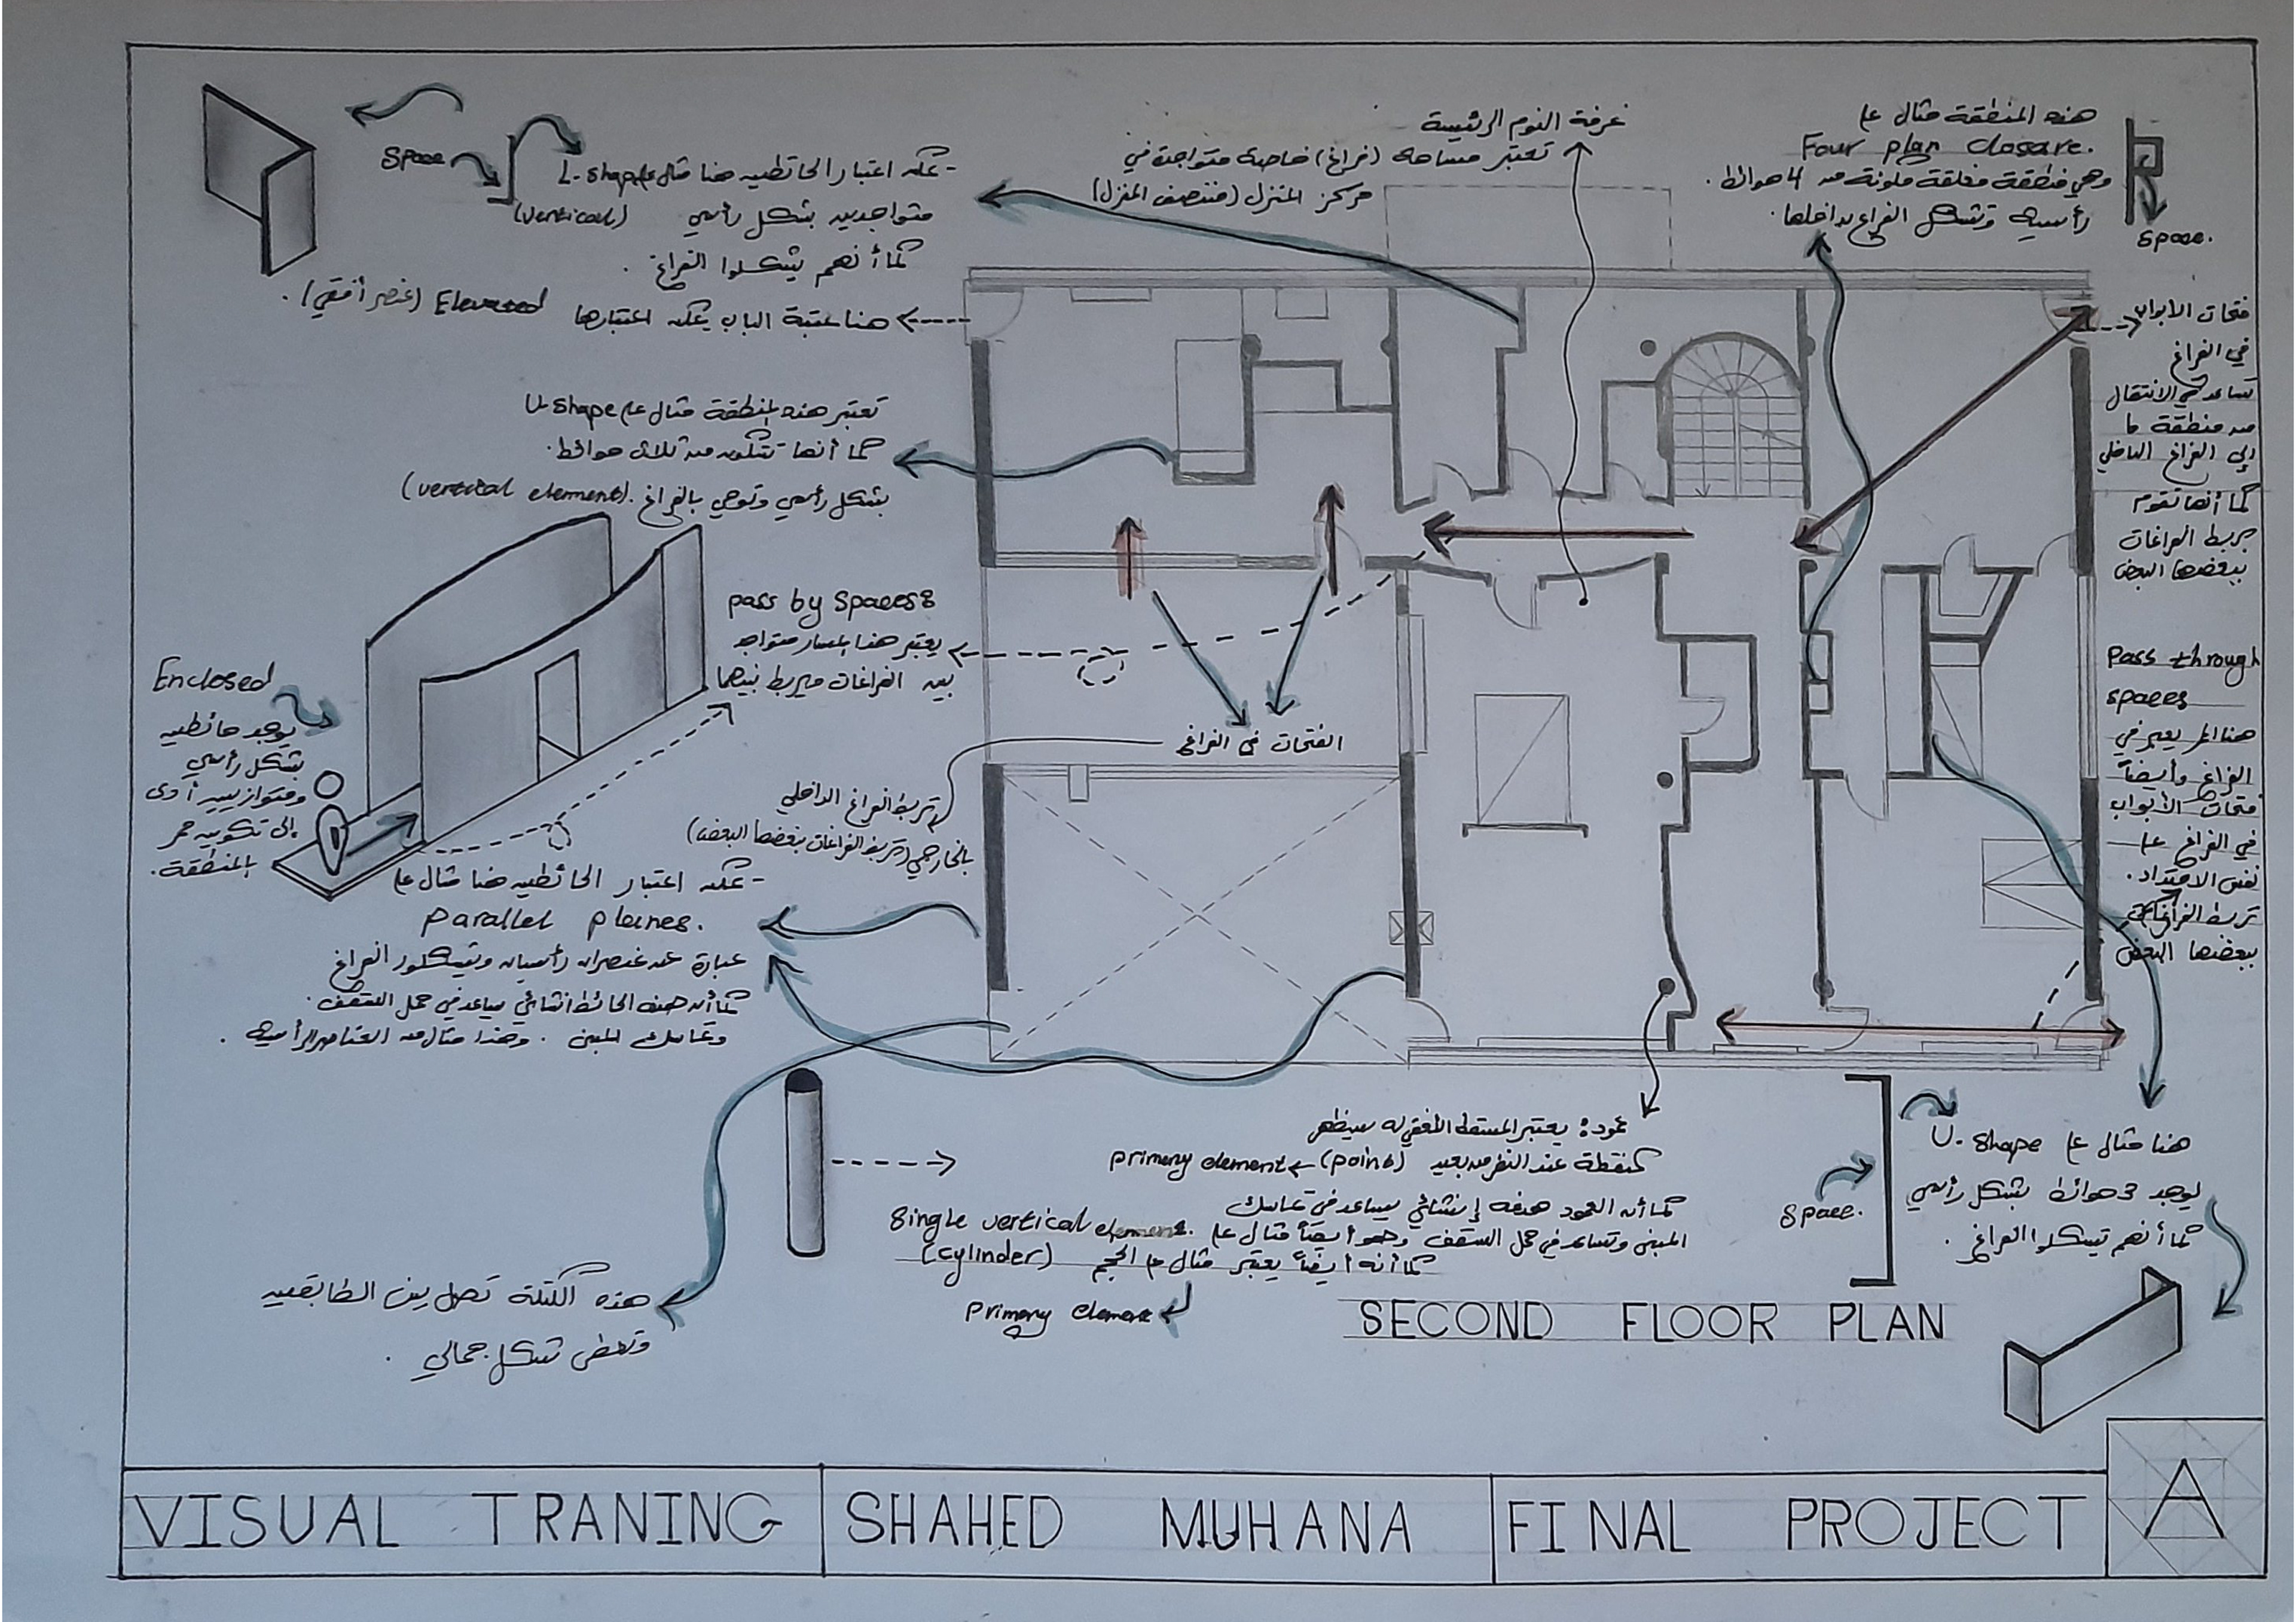 Space
- يمكن اعتبار الحائطين هنا مثال على L-shape
متواجدين بشكل رأسي (vertical)
كما أنهم يشكلوا الفراغ .
هنا عتبة الباب يمكن اعتبارها Elevated (عنصر أفقي) .
غرفة النوم الرئيسية
تعتبر مساحة (فراغ) خاصة متواجدة في
مركز المنزل (منتصف المنزل)
هذه المنطقة مثال على
Four plan closare.
وهي منطقة مغلقة مكونة من 4 حوائط .
رأسية وتشكل الفراغ بداخلها .
Space.
فتحات الأبواب
في الفراغ
تساعد في الانتقال
من منطقة ما
إلى الفراغ الداخلي
كما أنها تقوم
بربط الفراغات
ببعضها البعض
تعتبر هذه المنطقة مثال على U-shape
كما أنها تتكون من ثلاث حوائط .
بشكل رأسي وتوحي بالفراغ . (vertital element)
pass by spaces:
يعتبر هنا المسار متواجد
بين الفراغات ويربط بينها
Enclosed
يوجد حائطين
بشكل رأسي
ومتوازيين أدى
إلى تكوين ممر
بالمنطقة .
الفتحات في الفراغ
تربط الفراغ الداخلي
بالخارجي (تربط الفراغات ببعضها البعض)
pass through
spaces
هنا الممر يعبر في
الفراغ وأيضاً
فتحات الأبواب
في الفراغ على
نفس الامتداد .
تربط الفراغات
ببعضها البعض
- يمكن اعتبار الحائطين هنا مثال على
parallel planes.
عبارة عن عنصران رأسيان ويشكلون الفراغ
كما أن هذه الحائط انشائي يساعد في حمل السقف .
وتماسك المبنى . وهذا مثال من العناصر الرأسية .
عمود: يعتبر المسقط الأفقي له سيظهر
كنقطة عند النظر من بعيد (point) ← primeny element
كما أن العمود هدفه إنشائي يساعد في تماسك
المبنى وتساعد في حمل السقف وهو أيضاً مثال على single vertical element.
كما أنه أيضاً يعتبر مثال على الحجم (cylinder)
primeny element
هنا مثال على U-shape
يوجد 3 حوائط بشكل رأسي
كما أنهم يشكلوا الفراغ .
space.
هذه الكتلة تصل بين الطابقين
وتعطي شكل جمالي .
SECOND FLOOR PLAN
VISUAL TRANING
SHAHED MUHANA
FINAL PROJECT
A